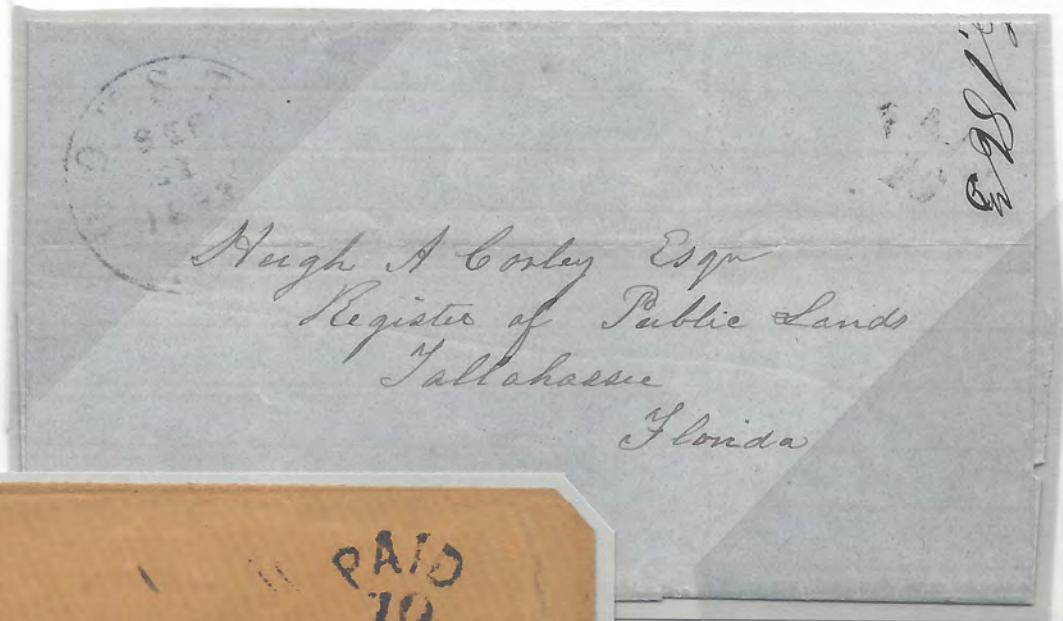 PA
10
1863
Hugh A Corley Esqr
Register of Public Lands
Tallahassee
Florida
PAID
10